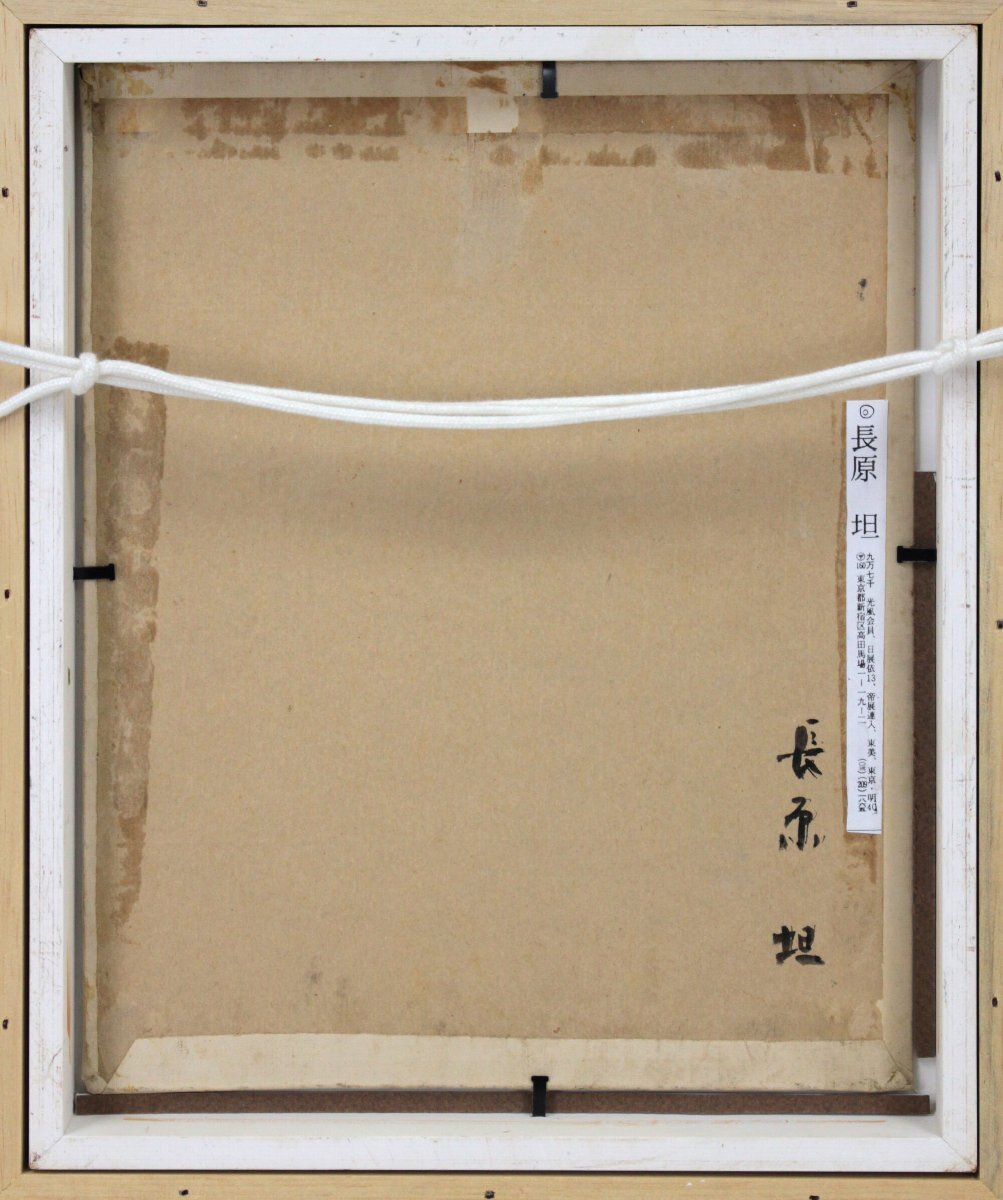 ◎長原 坦
九万七千 光風会員、日展依13、帝展連入、東美、東京・明40、
〒160 東京都新宿区高田馬場一ー一九ー二
長原 坦